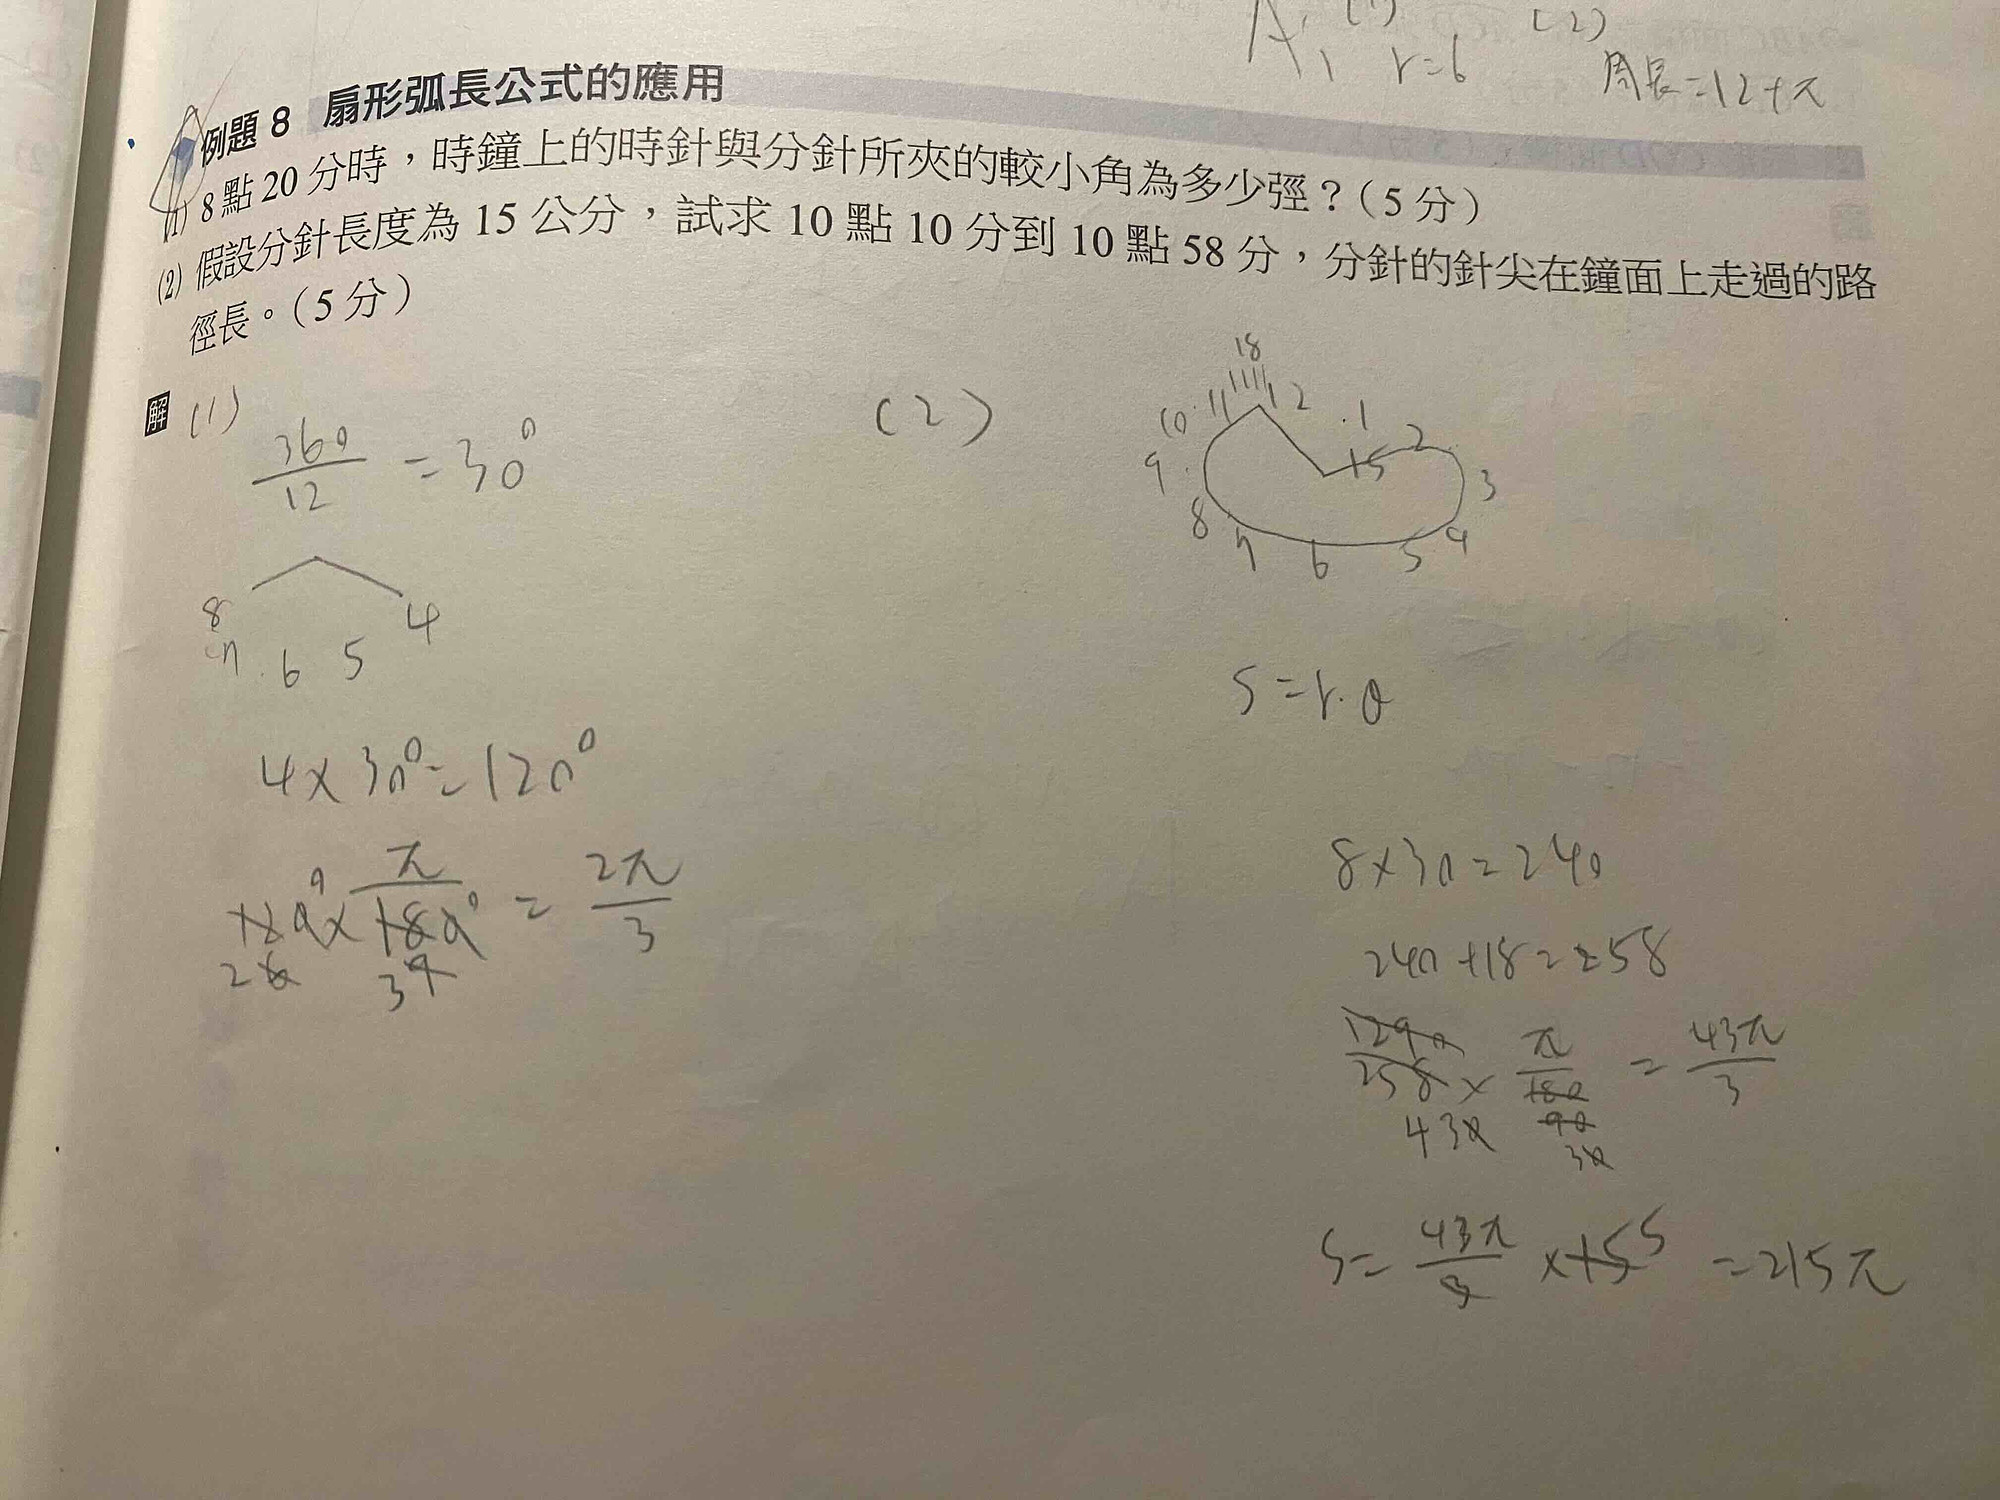 A, (1) r=6 (2) 周長=12+π
例題 8 扇形弧長公式的應用
(1) 8 點 20 分時，時鐘上的時針與分針所夾的較小角為多少弳？(5 分)
(2) 假設分針長度為 15 公分，試求 10 點 10 分到 10 點 58 分，分針的針尖在鐘面上走過的路
徑長。(5 分)
解 (1)
360/12 = 30°
8 7 6 5 4
4×30°=120°
120°× π/180° = 2π/3
2 3
(2)
18
10 11 12 1 2
9 15 3
8 7 6 5 4
S=r·θ
8×30=240
240+18=258
258 × π/180 = 43π/3
129
43 90
30
S= 43π/3 ×15 5 =215π